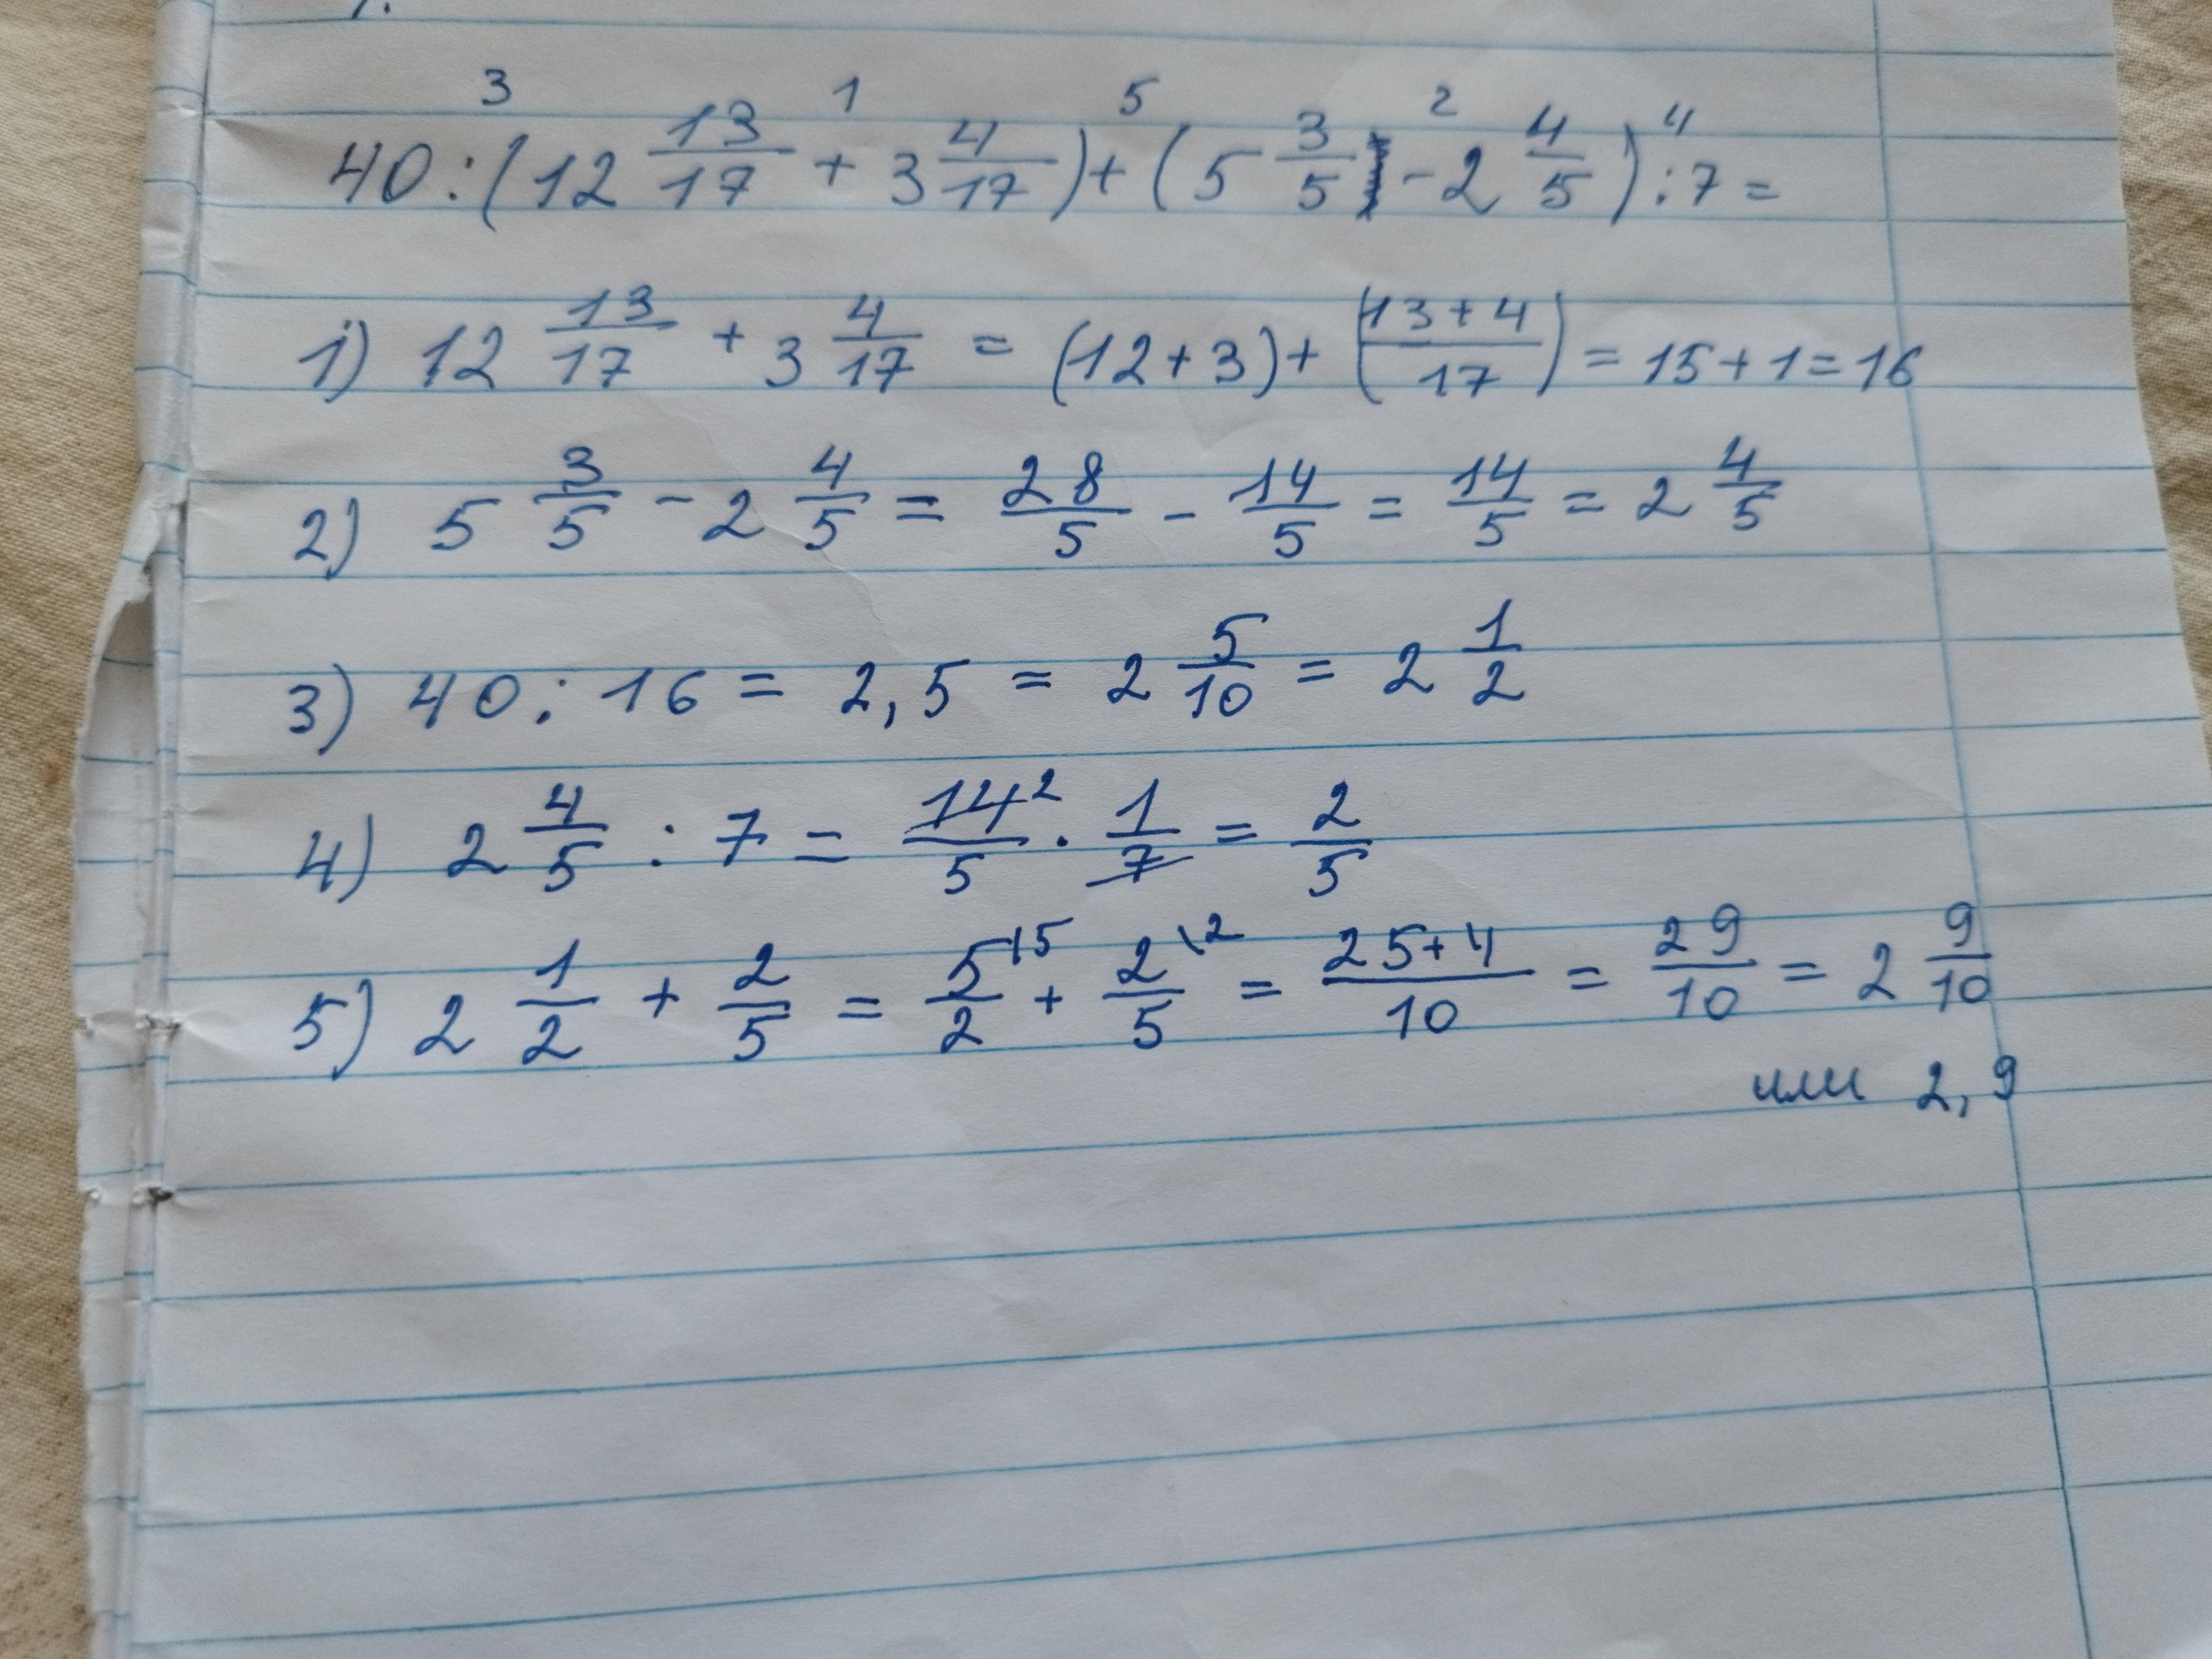 3 1 5 2 4
40 : (12 13/17 + 3 4/17) + (5 3/5 - 2 4/5) : 7 =
1) 12 13/17 + 3 4/17 = (12 + 3) + (13 + 4/17) = 15 + 1 = 16
2) 5 3/5 - 2 4/5 = 28/5 - 14/5 = 14/5 = 2 4/5
3) 40 : 16 = 2,5 = 2 5/10 = 2 1/2
4) 2 4/5 : 7 = 14²/5 · 1/7 = 2/5
5) 2 1/2 + 2/5 = 5\5/2 + 2\2/5 = 25+4/10 = 29/10 = 2 9/10
или 2,9